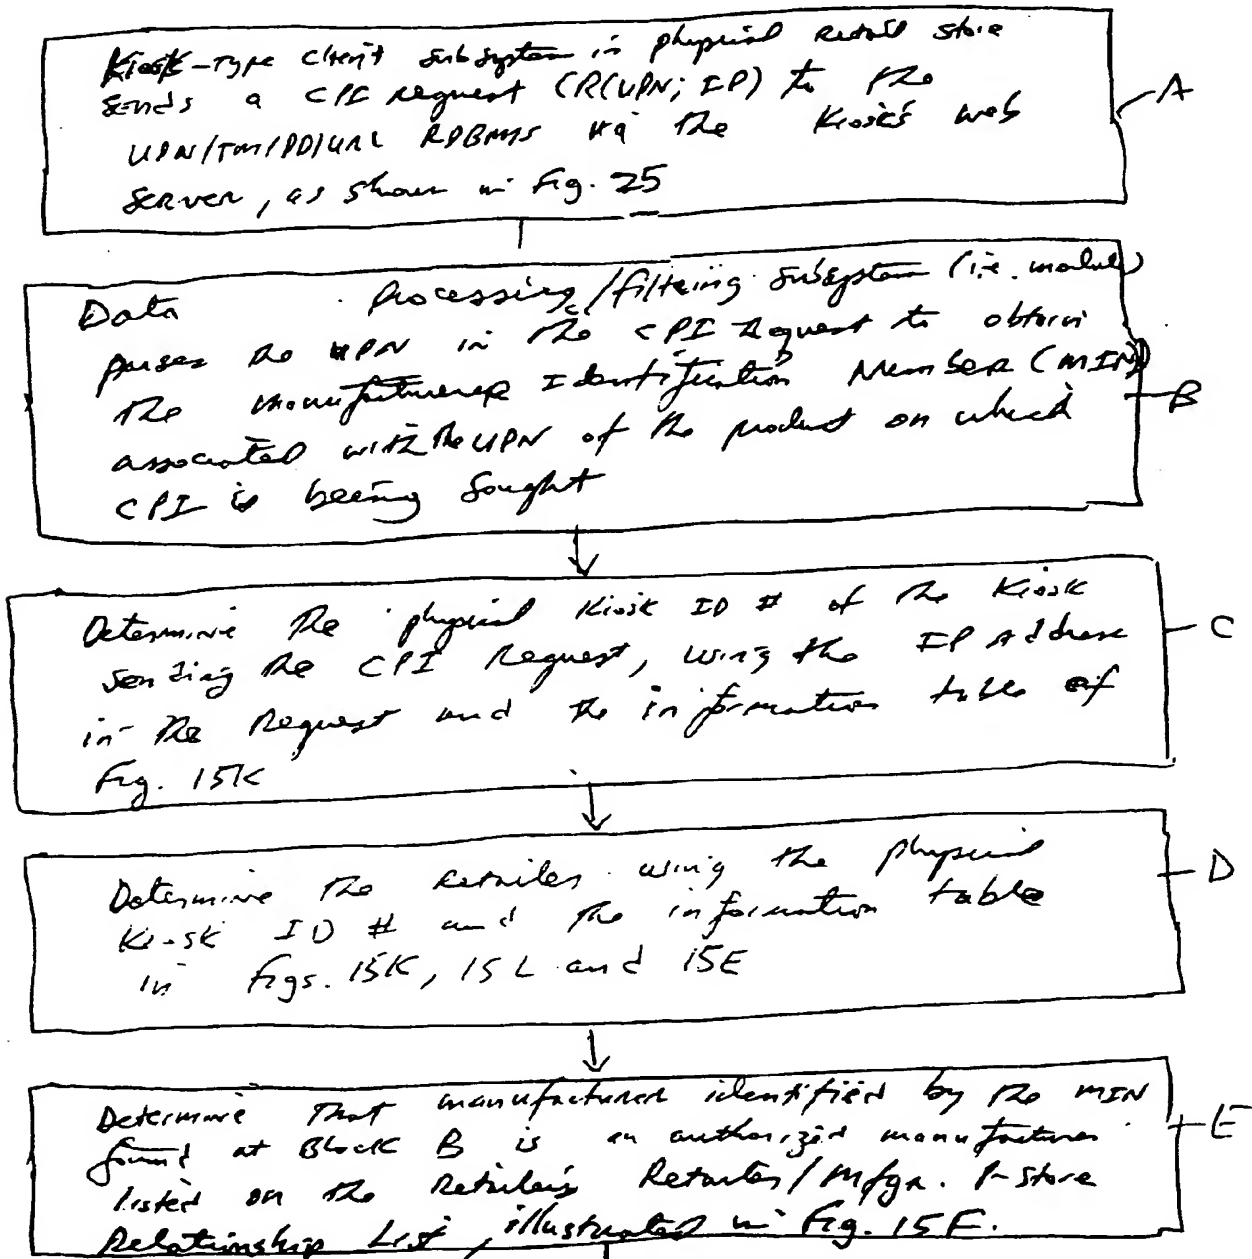 Kiosk-Type client subsystem in physical retail store
sends a CPI request (R(UPN; IP) to the
UPN/TM/PD/URL RDBMS via the Kiosk's web
server, as shown in Fig. 25
A
Data processing/filtering subsystem (i.e. module)
parses the UPN in the CPI request to obtain
the manufacturer Identification Number (MIN)
associated with the UPN of the product on which
CPI is being sought
B
Determine the physical Kiosk ID # of the Kiosk
sending the CPI Request, using the IP Address
in the Request and the information table of
Fig. 15K
C
Determine the retailer using the physical
Kiosk ID # and the information table
in Figs. 15K, 15L and 15E
D
Determine that manufacturer identified by the MIN
found at Block B is an authorized manufacturer
listed on the Retailer's Retailer/Mfgr. P-Store
Relationship List, illustrated in Fig. 15F.
E